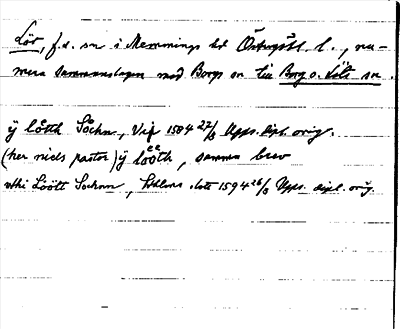 Löt, f.d. sn i Memmings hd Östergötl. l., nu-
mera sammanslagen med Borgs sn till Borg o. Löts sn.
ÿ lötth Sochn, Vif 1504 27/8 Upps. dipl. orig.
(her niels pastor) ÿ lööth, samma brev
vthi Löött Sochnn, 1594 26/8 Upps. dipl. orig.